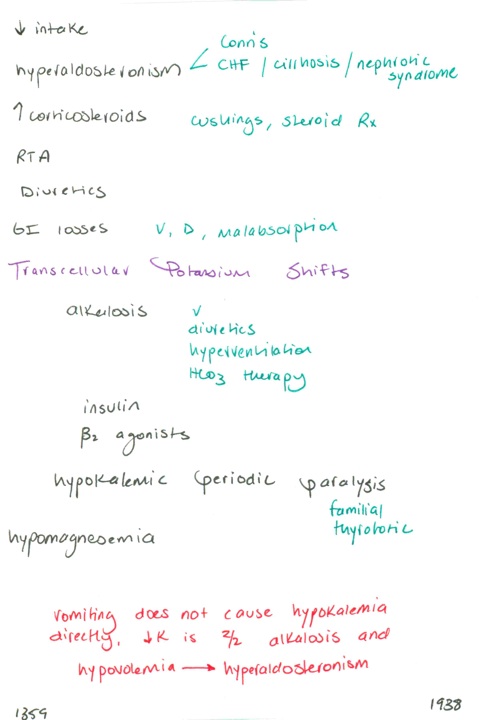 ↓ intake
Conn's
hyperaldosteronism < CHF / cirrhosis / nephrotic
syndrome
↑ corticosteroids cushings, steroid Rx
RTA
Diuretics
GI losses V, D, malabsorption
Transcellular Potassium Shifts
alkalosis V
diuretics
hyperventilation
HCO3 therapy
insulin
β2 agonists
hypokalemic periodic paralysis
familial
thyrotoxic
hypomagnesemia
vomiting does not cause hypokalemia
directly, ↓K is 2/2 alkalosis and
hypovolemia → hyperaldosteronism
1359 1938